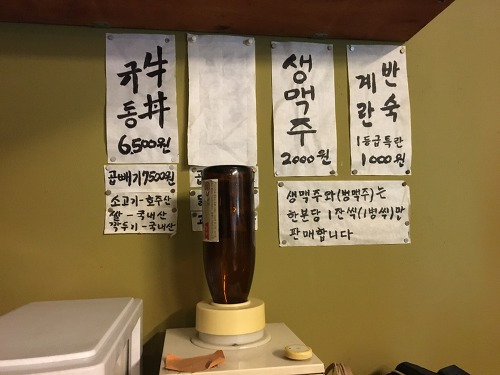 牛丼
규동
6,500원
곱빼기 7500원
소고기-호주산
쌀-국내산
깍두기-국내산
생맥주
2000원
반숙
계란
1등급특란
1000원
생맥주와(병맥주)는
한분당 1잔씩(1병씩)만
판매합니다